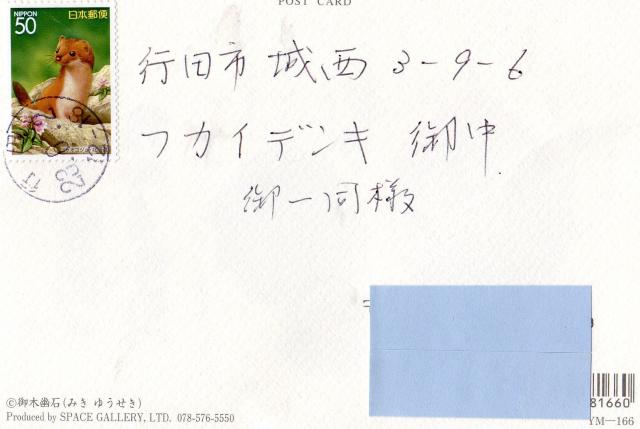 POST CARD
NIPPON 日本郵便
50
行田市 城西 3-9-6
フカイデンキ 御中
御一同様
©御木幽石(みき ゆうせき)
Produced by SPACE GALLERY, LTD. 078-576-5550
81660
YM—166